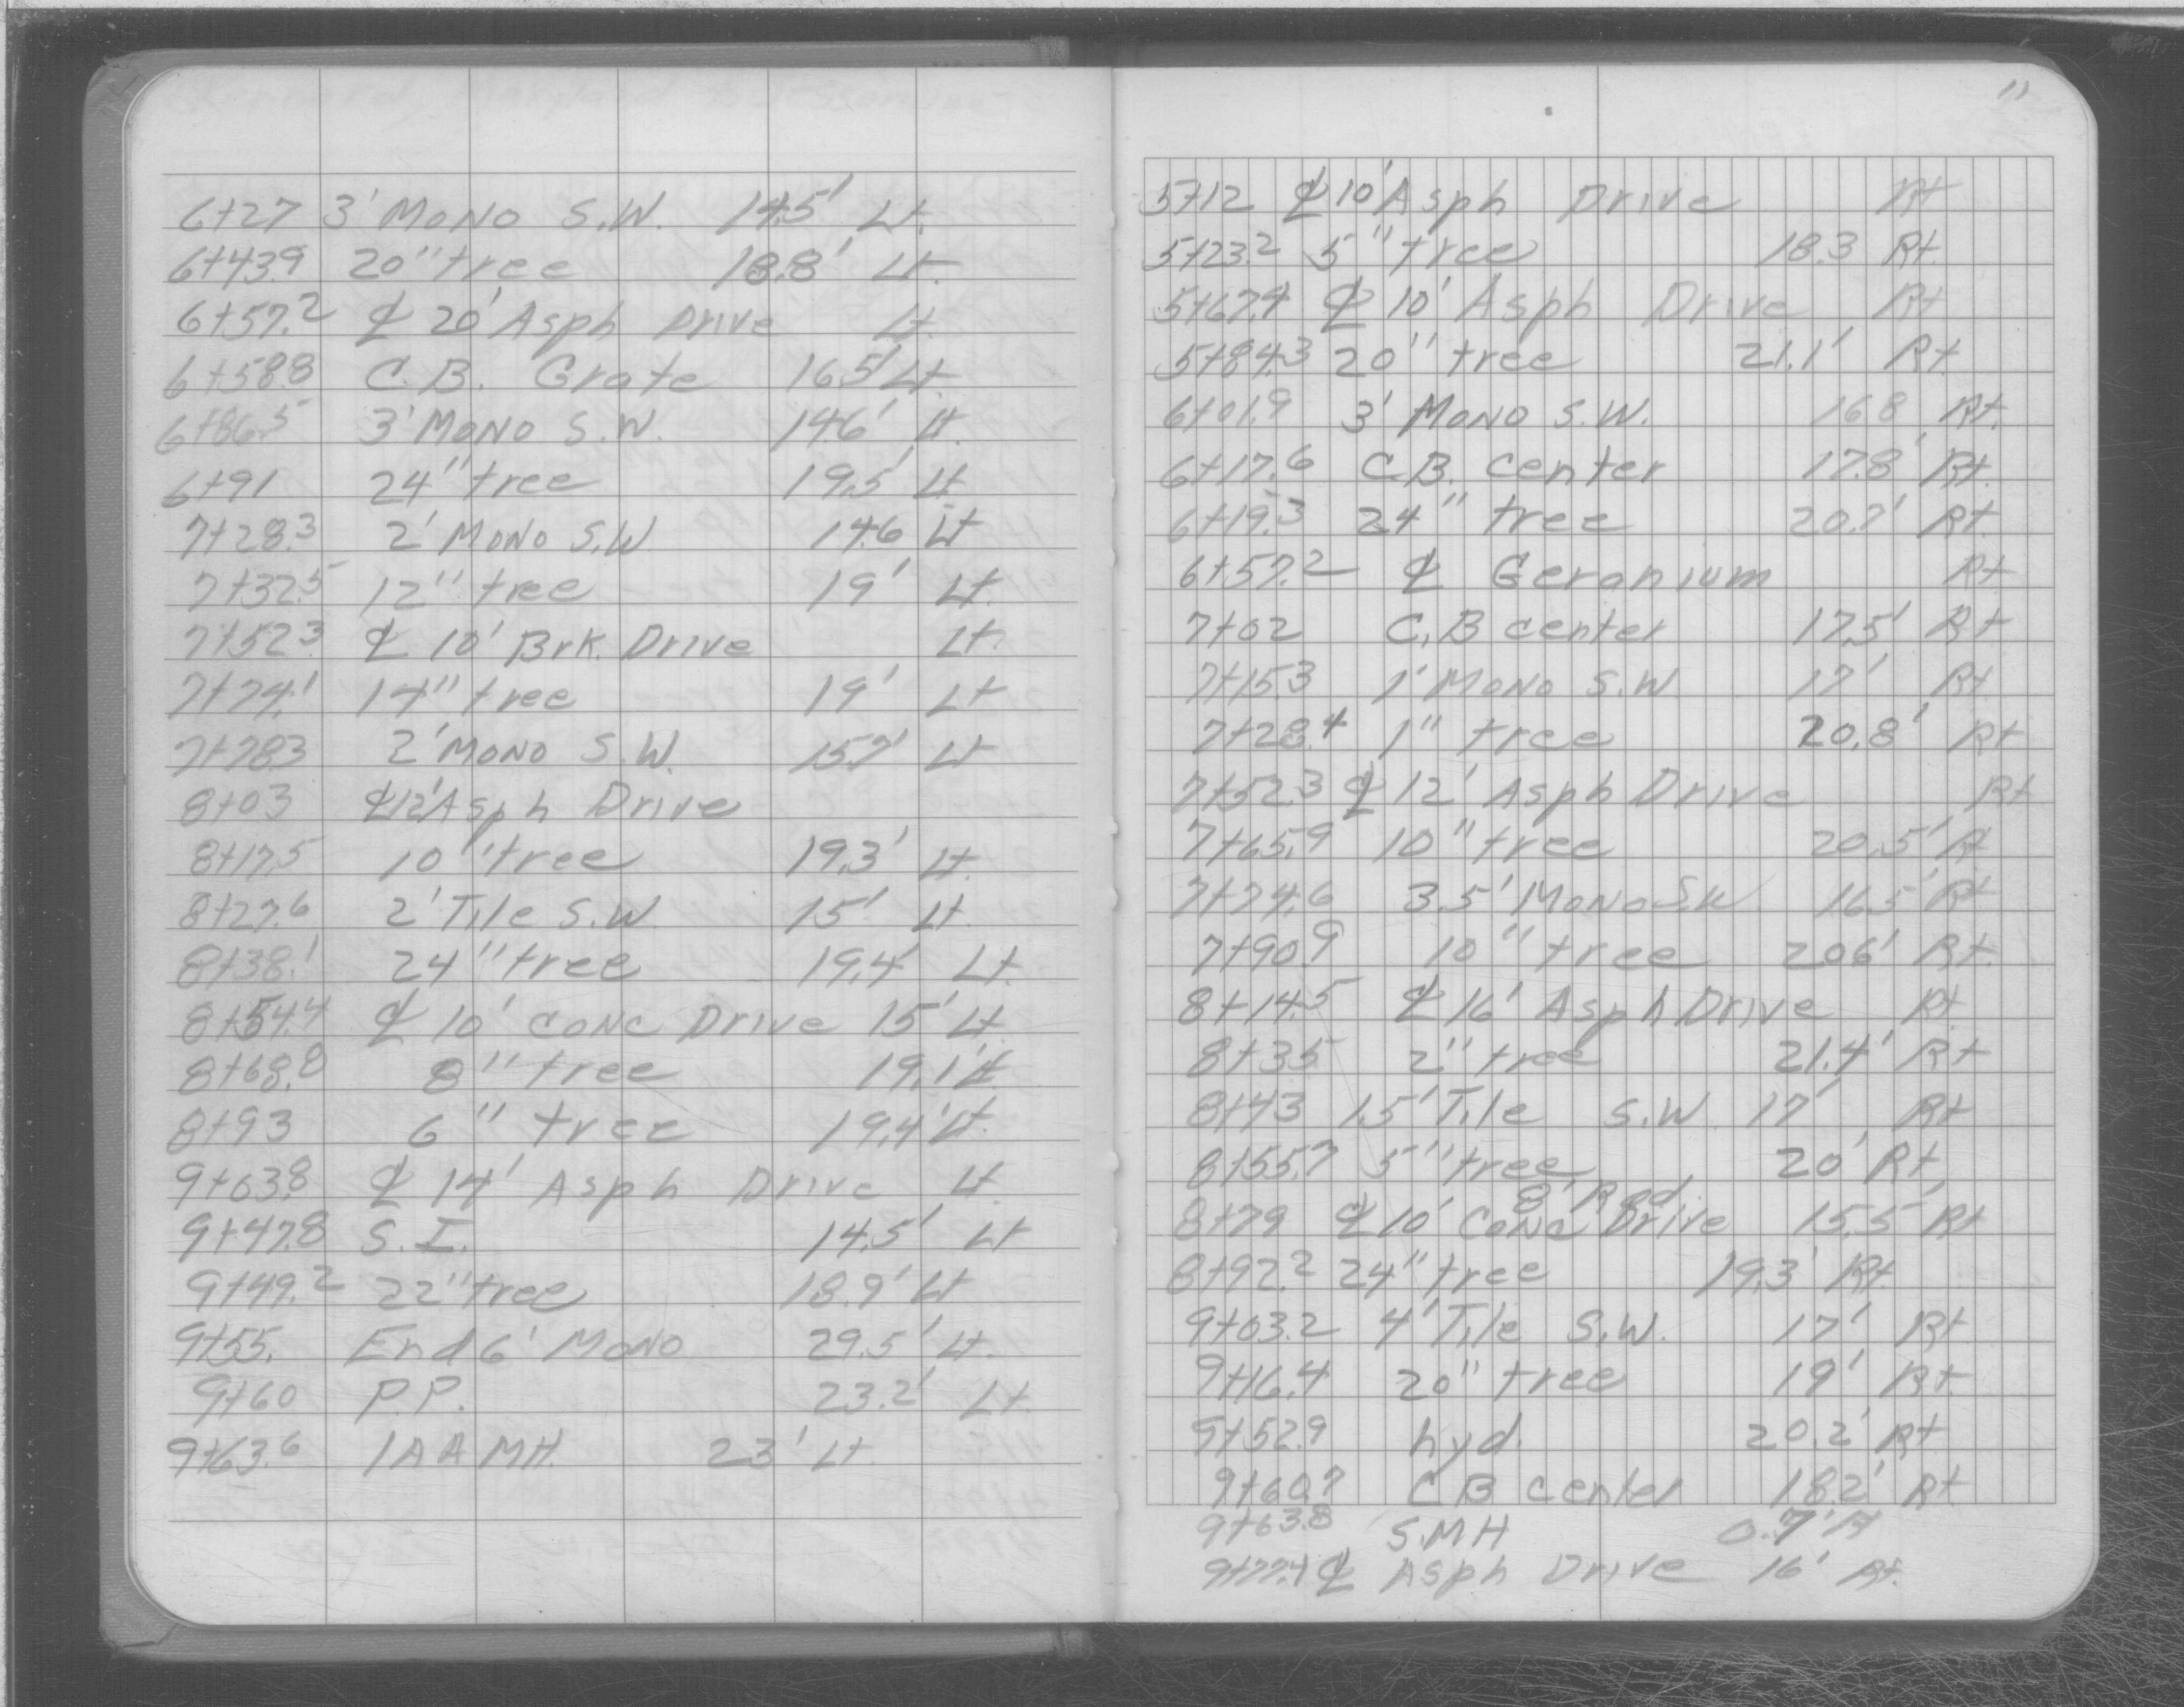 6+27 3' MONO S.W. 14.5' Lt.
6+43.9 20" tree 18.8' Lt.
6+57.2 ℄ 20' Asph Drive Lt.
6+58.8 C.B. Grate 16.5' Lt.
6+86.5 3' MONO S.W. 14.6' Lt.
6+91 24" tree 19.5' Lt
7+28.3 2' MONO S.W 14.6 Lt
7+32.5 12" tree 19' Lt.
7+52.3 ℄ 10' Brk. Drive Lt.
7+74.1 14" tree 19' Lt
7+78.3 2' MONO S.W. 15.7' Lt
8+03 ℄ 12' Asph Drive
8+17.5 10" tree 19.3' Lt.
8+27.6 2' Tile S.W 15' Lt.
8+38.1 24" tree 19.4' Lt.
8+54.4 ℄ 10' CONC Drive 15' Lt.
8+68.8 8" tree 19.1' Lt.
8+93 6" tree 19.4' Lt.
9+03.8 ℄ 14' Asph Drive Lt.
9+47.8 S.I. 14.5' Lt
9+49.2 22" tree 18.9' Lt
9+55. End 6' MONO 29.5' Lt.
9+60 P.P. 23.2' Lt.
9+63.6 1AA MH. 23' Lt.
11
5+12 ℄ 10' Asph Drive Rt
5+23.2 5" tree 18.3 Rt.
5+67.4 ℄ 10' Asph Drive Rt
5+84.3 20" tree 21.1' Rt.
6+01.9 3' MONO S.W. 16.8 Rt.
6+17.6 C.B. center 17.8' Rt.
6+19.3 24" tree 20.7' Rt.
6+57.2 ℄ Geranium Rt
7+02 C.B center 17.5' Rt
7+15.3 1' MONO S.W 17' Rt
7+28.4 1" tree 20.8' Rt
7+52.3 ℄ 12' Asph Drive Rt
7+65.9 10" tree 20.5' Rt
7+74.6 3.5' MONO S.W 16.5' Rt
7+90.9 10" tree 20.6' Rt.
8+14.5 ℄ 16' Asph Drive Rt
8+35 2" tree 21.4' Rt
8+43 1.5' Tile S.W. 17' Rt
8+55.7 5" tree 20' Rt.
8' Rad.
8+79 ℄ 10' CONC Drive 15.5' Rt
8+92.2 24" tree 19.3' Rt.
9+03.2 4' Tile S.W. 17' Rt
9+16.4 20" tree 19' Rt.
9+52.9 hyd. 20.2' Rt
9+60.7 CB center 18.2' Rt
9+63.8 S.MH 0.7' Rt
9+77.4 ℄ Asph Drive 16' Rt.